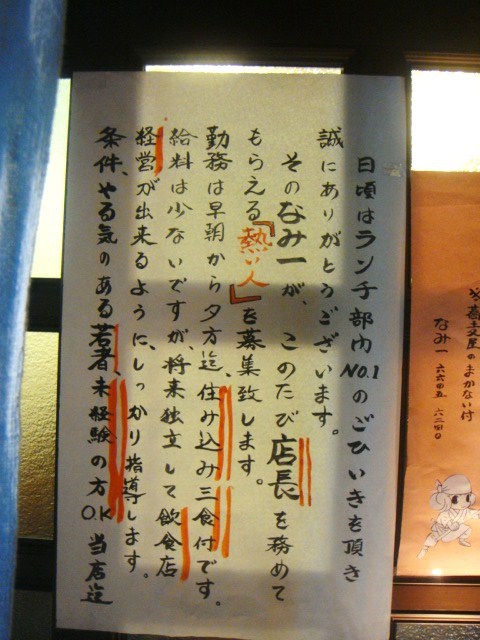 日頃はランチ部内NO.1のごひいきを頂き
誠にありがとうございます。
そのなみ一が、このたび店長を務めて
もらえる『熱い人』を募集致します。
勤務は早朝から夕方迄、住み込み三食付です。
給料は少ないですが、将来独立して飲食店
経営が出来るように、しっかり指導します。
条件、やる気のある若者、未経験の方O.K当店迄
蕎麦屋のまかない付
なみ一